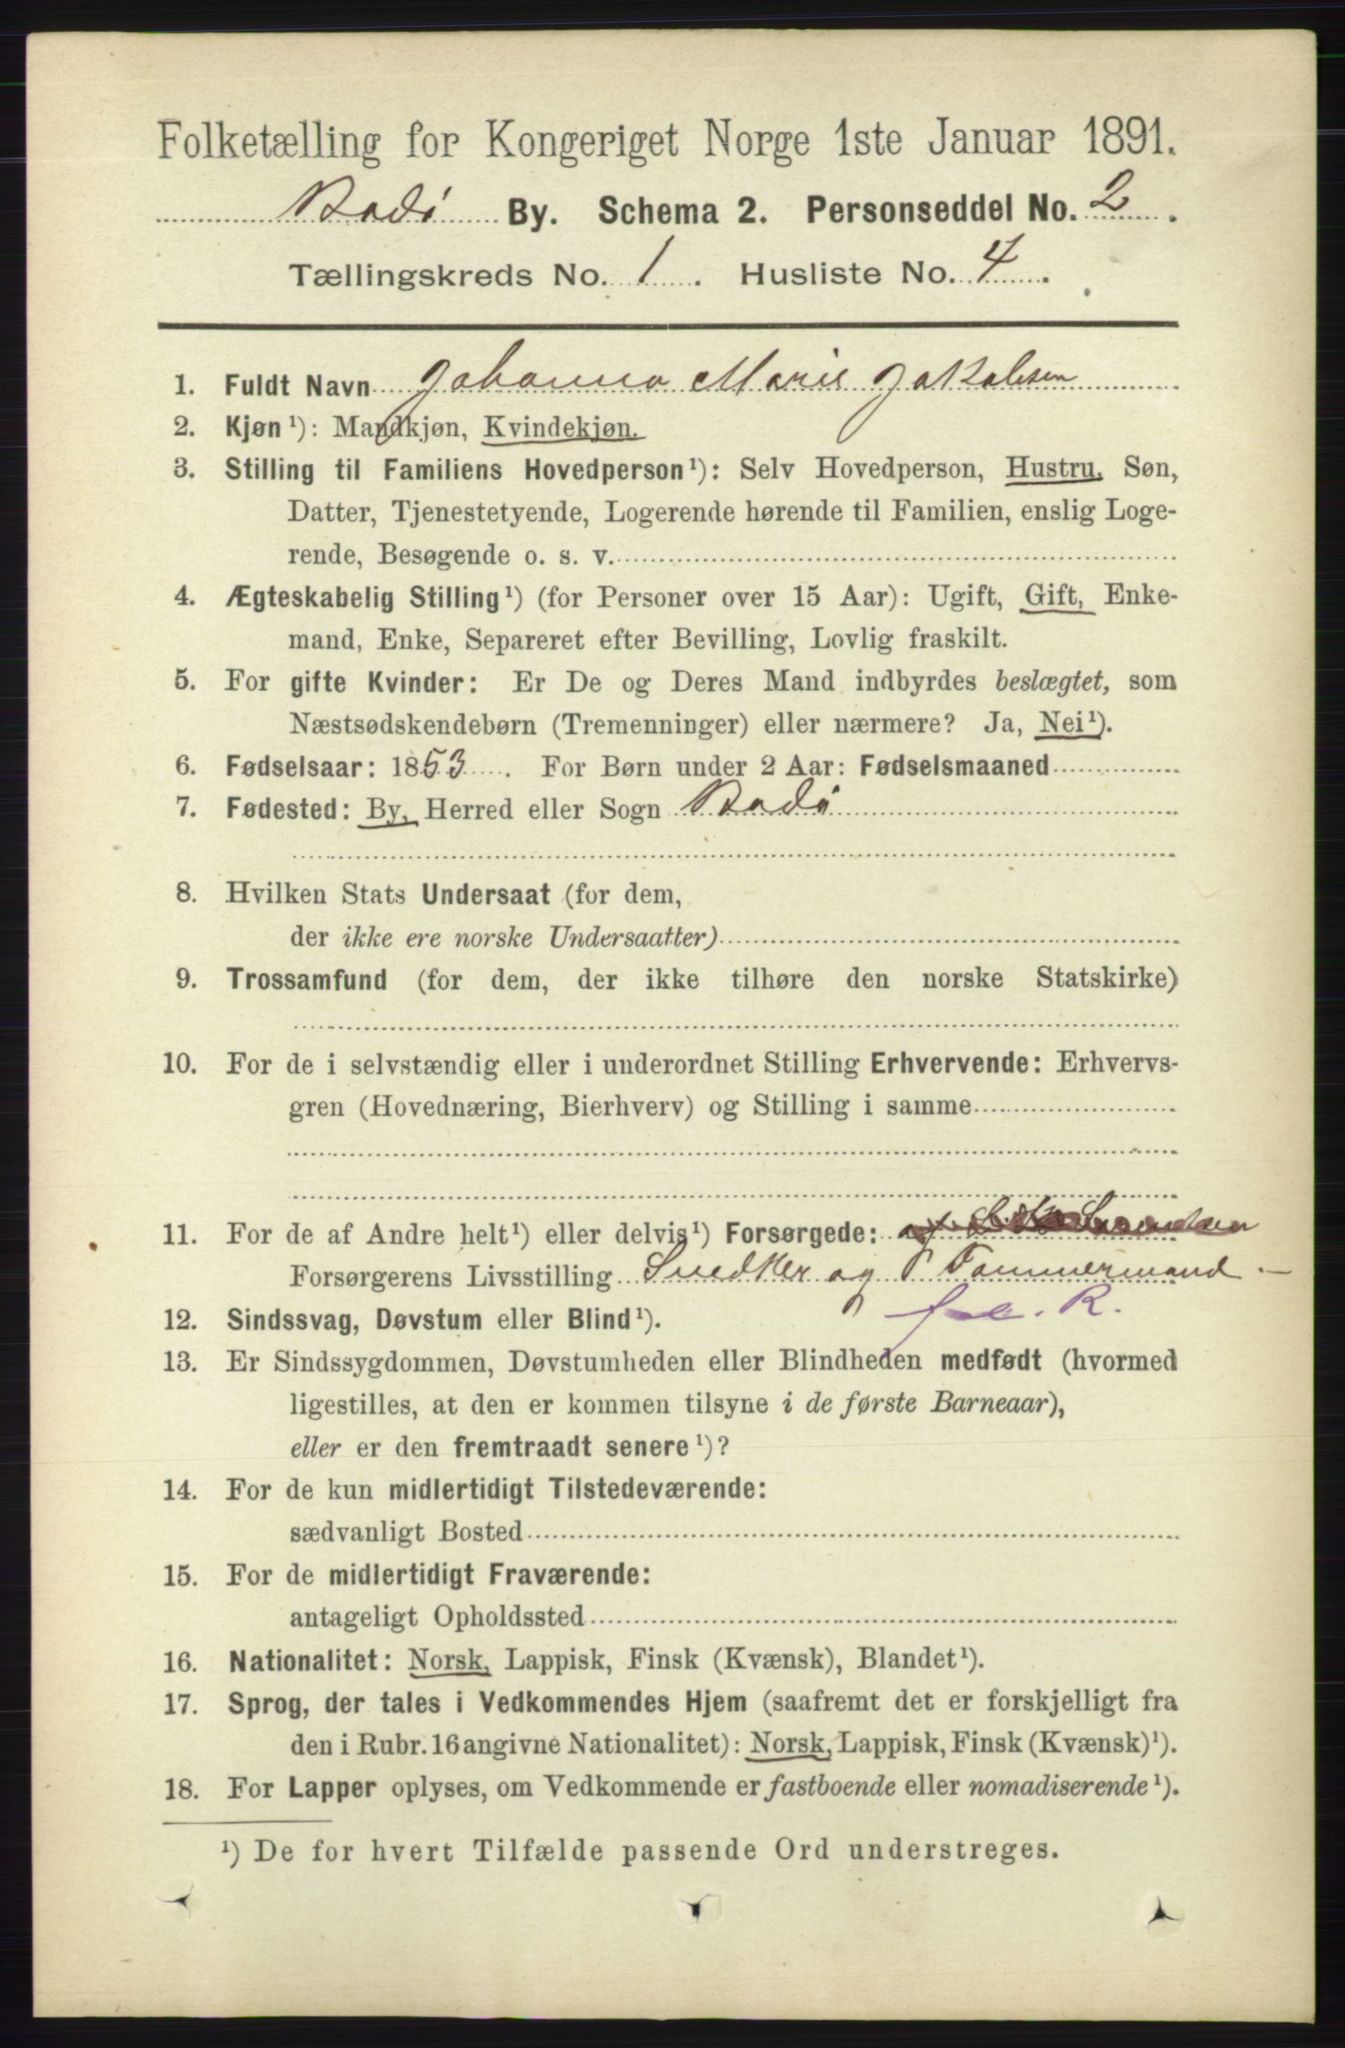 Folketælling for Kongeriget Norge 1ste Januar 1891.
Bodø By. Schema 2. Personseddel No. 2.
Tællingskreds No. 1. Husliste No. 4.
1. Fuldt Navn Johanna Marie Jakobsen
2. Kjøn¹): Mandkjøn, Kvindekjøn.
3. Stilling til Familiens Hovedperson¹): Selv Hovedperson, Hustru, Søn,
Datter, Tjenestetyende, Logerende hørende til Familien, enslig Loge-
rende, Besøgende o. s. v.
4. Ægteskabelig Stilling¹) (for Personer over 15 Aar): Ugift, Gift, Enke-
mand, Enke, Separeret efter Bevilling, Lovlig fraskilt.
5. For gifte Kvinder: Er De og Deres Mand indbyrdes beslægtet, som
Næstsødskendebørn (Tremenninger) eller nærmere? Ja, Nei¹).
6. Fødselsaar: 1853. For Børn under 2 Aar: Fødselsmaaned
7. Fødested: By, Herred eller Sogn Bodø
8. Hvilken Stats Undersaat (for dem,
der ikke ere norske Undersaatter)
9. Trossamfund (for dem, der ikke tilhøre den norske Statskirke)
10. For de i selvstændig eller i underordnet Stilling Erhvervende: Erhvervs-
gren (Hovednæring, Bierhverv) og Stilling i samme
11. For de af Andre helt¹) eller delvis¹) Forsørgede: af
Forsørgerens Livsstilling Snedker og Tømmermand
12. Sindssvag, Døvstum eller Blind¹).
13. Er Sindssygdommen, Døvstumheden eller Blindheden medfødt (hvormed
ligestilles, at den er kommen tilsyne i de første Barneaar),
eller er den fremtraadt senere¹)?
14. For de kun midlertidigt Tilstedeværende:
sædvanligt Bosted
15. For de midlertidigt Fraværende:
antageligt Opholdssted
16. Nationalitet: Norsk, Lappisk, Finsk (Kvænsk), Blandet¹).
17. Sprog, der tales i Vedkommendes Hjem (saafremt det er forskjelligt fra
den i Rubr. 16 angivne Nationalitet): Norsk, Lappisk, Finsk (Kvænsk)¹).
18. For Lapper oplyses, om Vedkommende er fastboende eller nomadiserende¹).
¹) De for hvert Tilfælde passende Ord understreges.